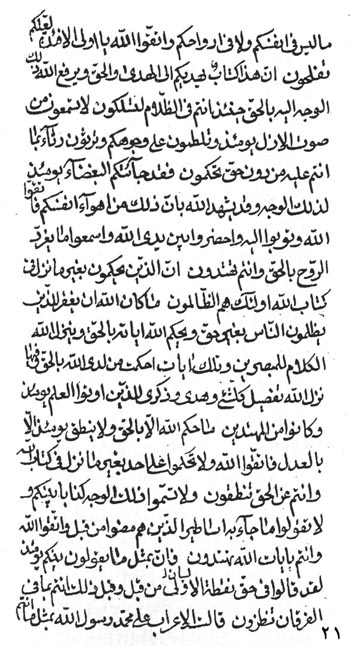 ما ليس فى انفسكم ولا فى ارواحكم واتقوا الله يا اولى الافئدة لعلكم
تفلحون ان هذا كتاب يهديكم الى الهدى والحق ويرفع الله ذلك
الوجه اليه بالحق حينئذ انتم فى الظلام لتسلكون لا تسمعون من
صوت الازل يومئذ وتلطمون على وجوهكم وتربون رثاء بما
انتم عليه من دون حق تحكمون فقد جائتكم البغضاء يومئذ
لذلك الوجه وقد يشهد الله بان ذلك من اهواء انفسكم فاتقوا
الله وتوبوا اليه واحضروا بين يدى الله واسمعوا ما يغرد
الروح بالحق وانتم تهتدون ان الذين يحكمون بغير ما نزل فى
كتاب الله اولئك هم الظالمون ما كان الله ان يغفر للذين
يظلمون الناس بغير حق ويحكم الله اياته بالحق وينزل الله
الكلام للمبصرين وتلك ايات احكمت من لدى الله بالحق فيها
نزل الله تفصيل كلشئ وهدى وذكرى للذين اوتوا العلم يومئذ
وكانوا من المهتدين ما حكم الله الا بالحق ولا ينطق يومئذ الا
بالعدل فاتقوا الله ولا تحكموا على احد بغير ما نزل فى كتاب الله
وانتم عن الحق تنطقون ولا تسموا ذلك الوجه كذابا بينكم و
لا تقولوا ما جاء به اساطير الذين هم مضوا من قبل واتقوا الله
وانتم بايات الله تهتدون فان بمثل ما يقولون بينكم يومئذ
لقد قالوا فى حق نقطة الاولى من قبل وقبل ذلك انتم بما فى البيان
الفرقان تنظرون قالت الاعراب على محمد رسول الله بمثل ما انتم
٢١